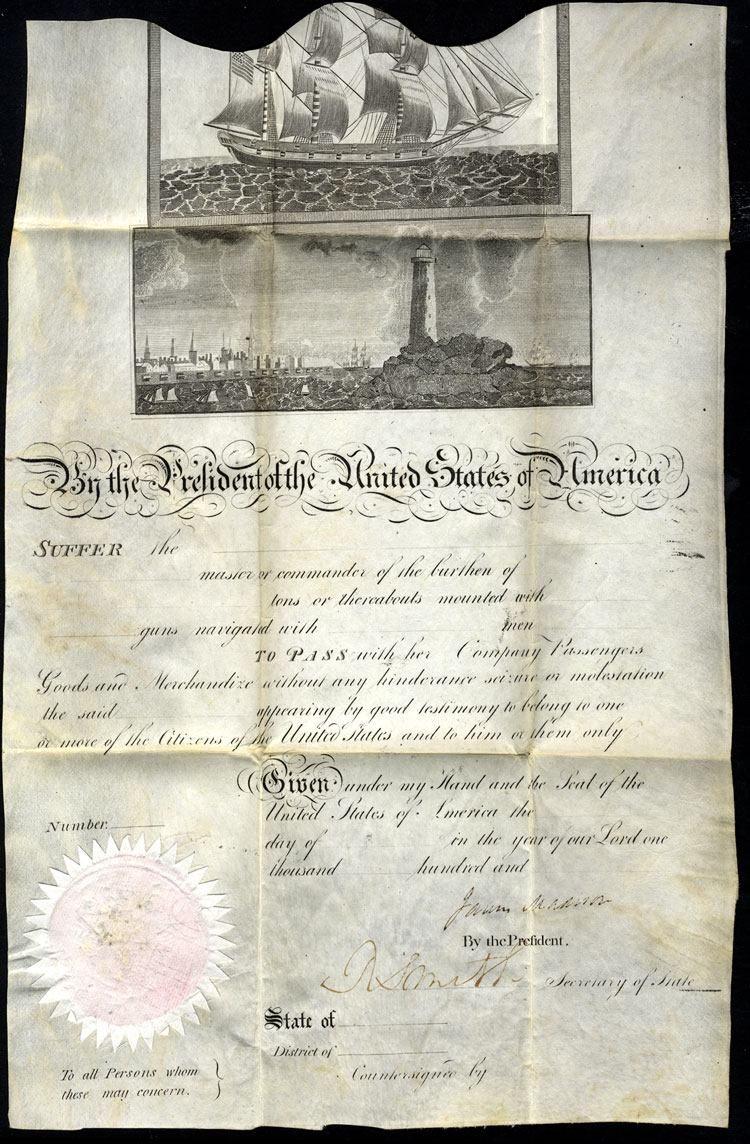 By the President of the United States of America
SUFFER the
master or commander of the burthen of
tons or thereabouts mounted with
guns navigated with men
TO PASS with her Company Passengers
Goods and Merchandize without any hinderance seizure or molestation
the said appearing by good testimony to belong to one
or more of the Citizens of the United States and to him or them only
Given under my Hand and the Seal of the
United States of America the
Number
day of in the year of our Lord one
thousand hundred and
James Madison
By the President.
R Smith Secretary of State
State of
District of
Countersigned by
To all Persons whom
these may concern.